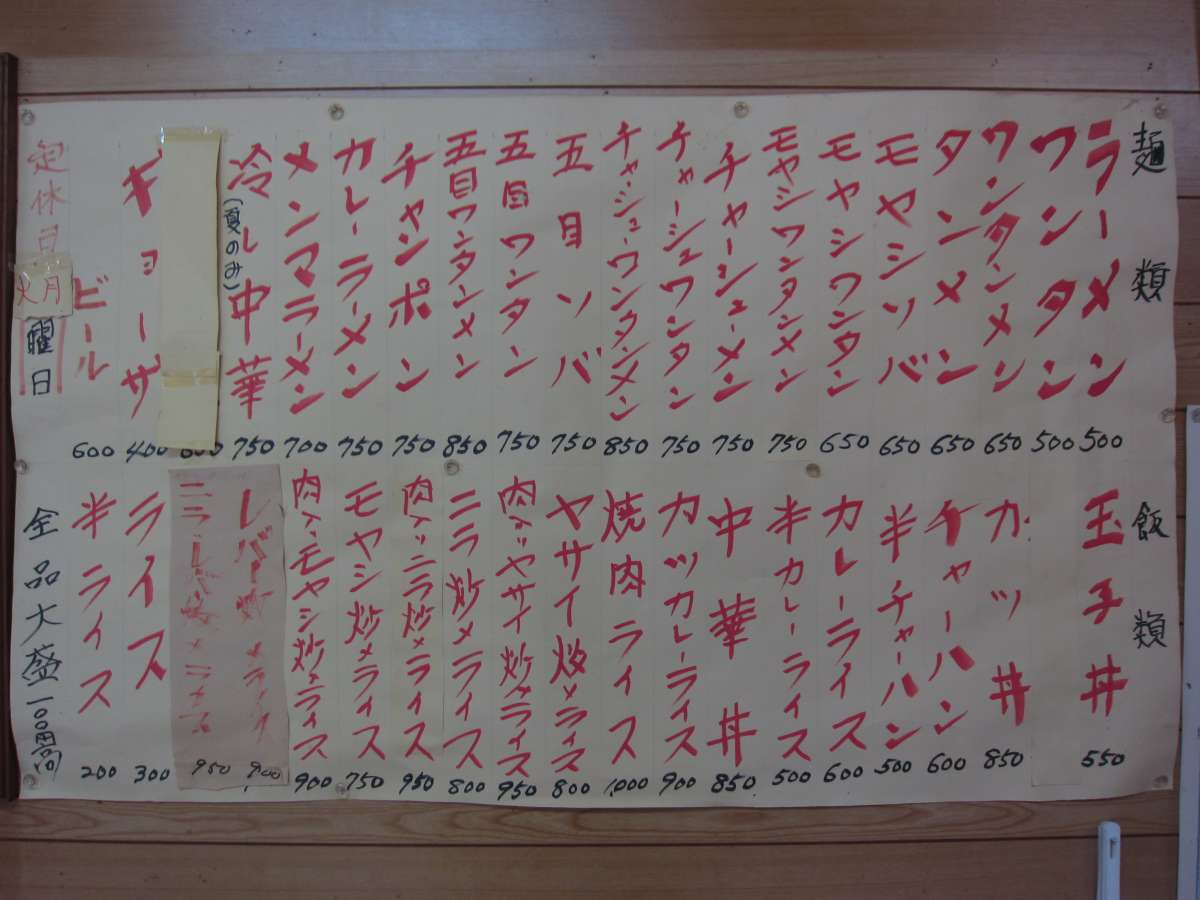 麺類
ラーメン 500
ワンタン 500
ワンタンメン 650
タンメン 650
モヤシソバ 650
モヤシワンタン 650
モヤシワンタンメン 750
チャーシューメン 750
チャーシュウワンタン 750
チャーシューワンタンメン 850
五目ソバ 750
五目ワンタン 750
五目ワンタンメン 850
チャンポン 750
カレーラーメン 750
メンマラーメン 700
冷し中華 750
(夏のみ)
ギョーザ 400
ビール 600
定休日
火月
曜日
飯類
玉子丼 550
カツ丼 850
チャーハン 600
半チャーハン 500
カレーライス 600
半カレーライス 500
中華丼 850
カツカレーライス 900
焼肉ライス 1,000
ヤサイ炒メライス 800
肉入ヤサイ炒メライス 950
ニラ炒メライス 800
肉入ニラ炒メライス 950
モヤシ炒メライス 750
肉入モヤシ炒メライス 900
レバー炒メライス 900
ニラレバ炒メライス 950
ライス 300
半ライス 200
全品大盛一〇〇円高